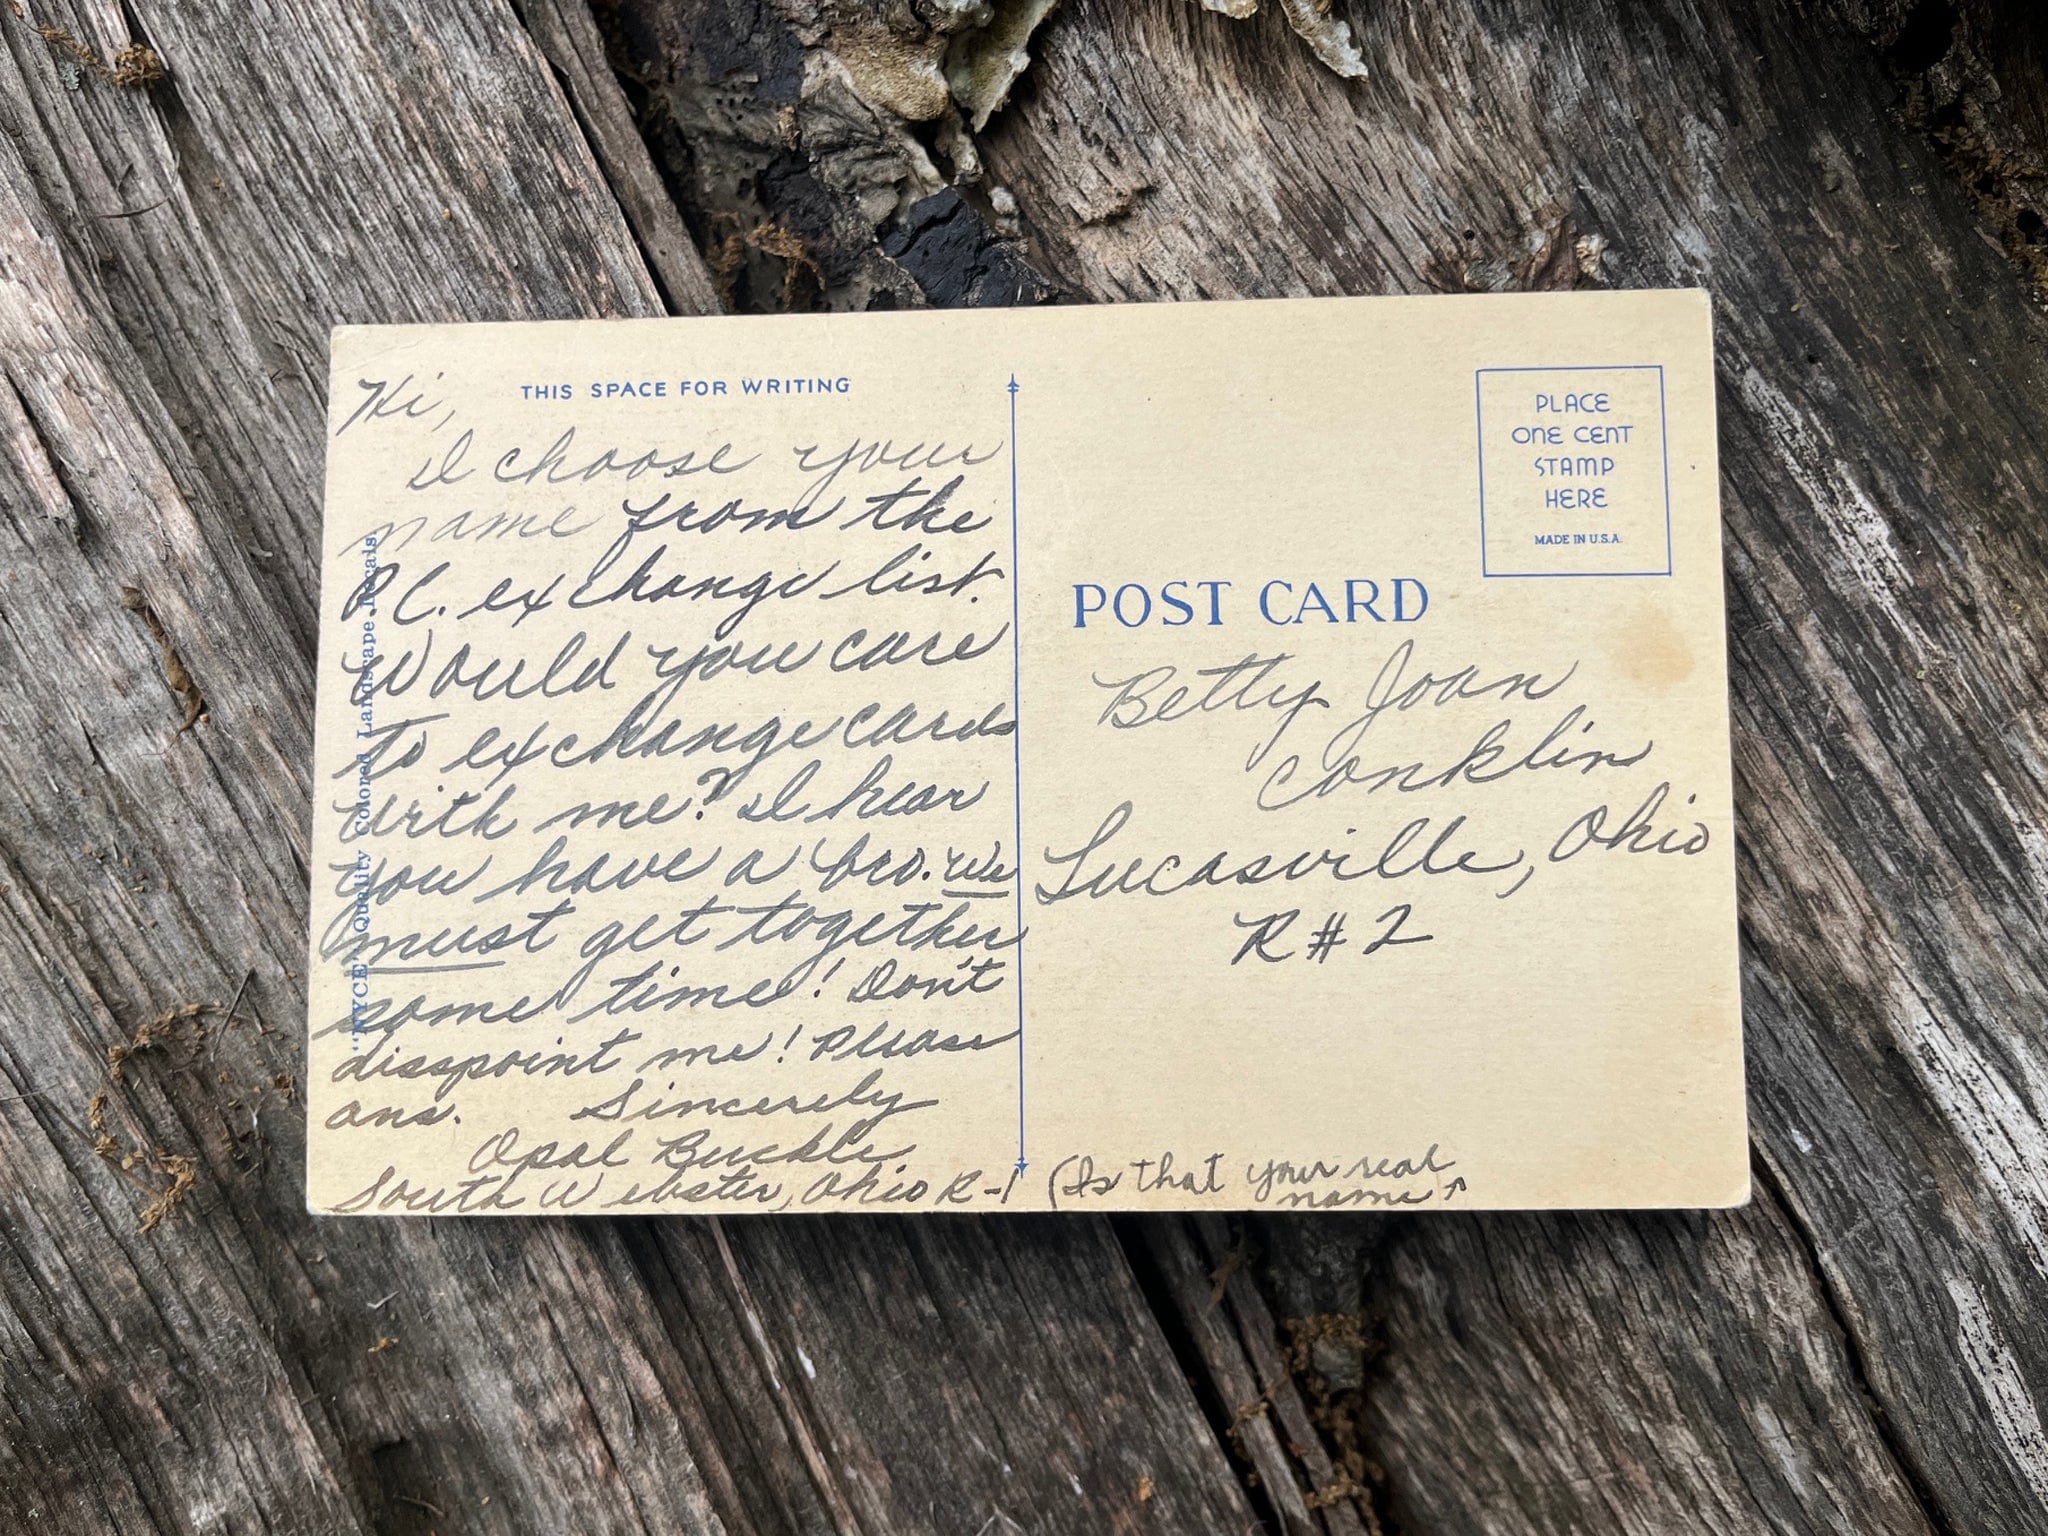 THIS SPACE FOR WRITING
Hi,
I choose your
name from the
P.C. exchange list.
Would you care
to exchange cards
with me? I hear
you have a bro. We
must get together
some time! Don't
disspoint me! Please
ans. Sincerely
Opal Buckle
South Webster, Ohio R-1
"NYCE" Quality Colored Landscape Locals
PLACE
ONE CENT
STAMP
HERE
MADE IN U.S.A.
POST CARD
Betty Joan
Conklin
Lucasville, Ohio
R#2
(Is that your real
name ^